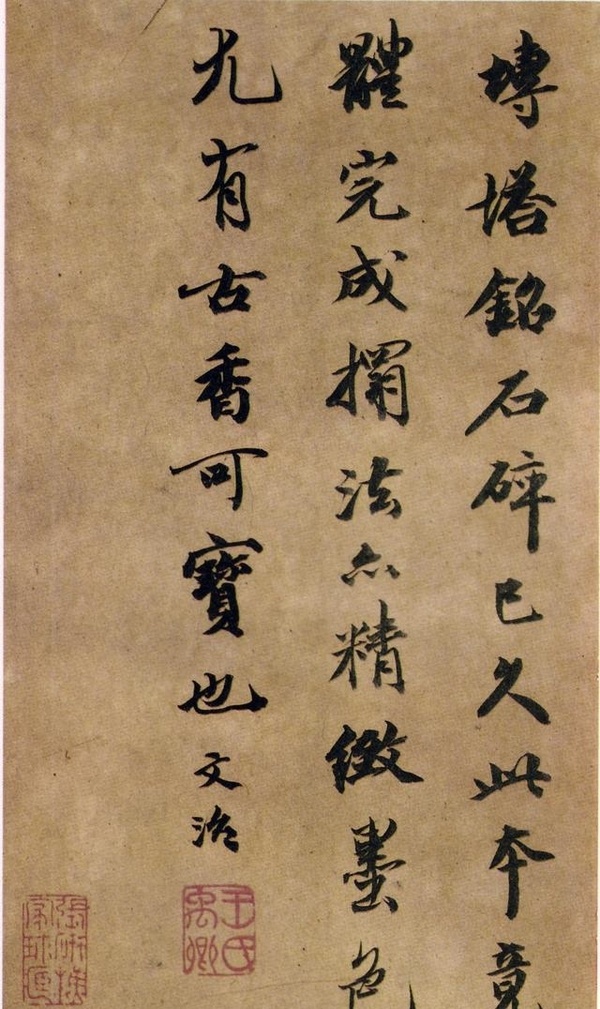 塼塔銘石碎已久此本竟
體完成搨法亦精緻墨色
尤有古香可寶也 文治
王氏禹卿